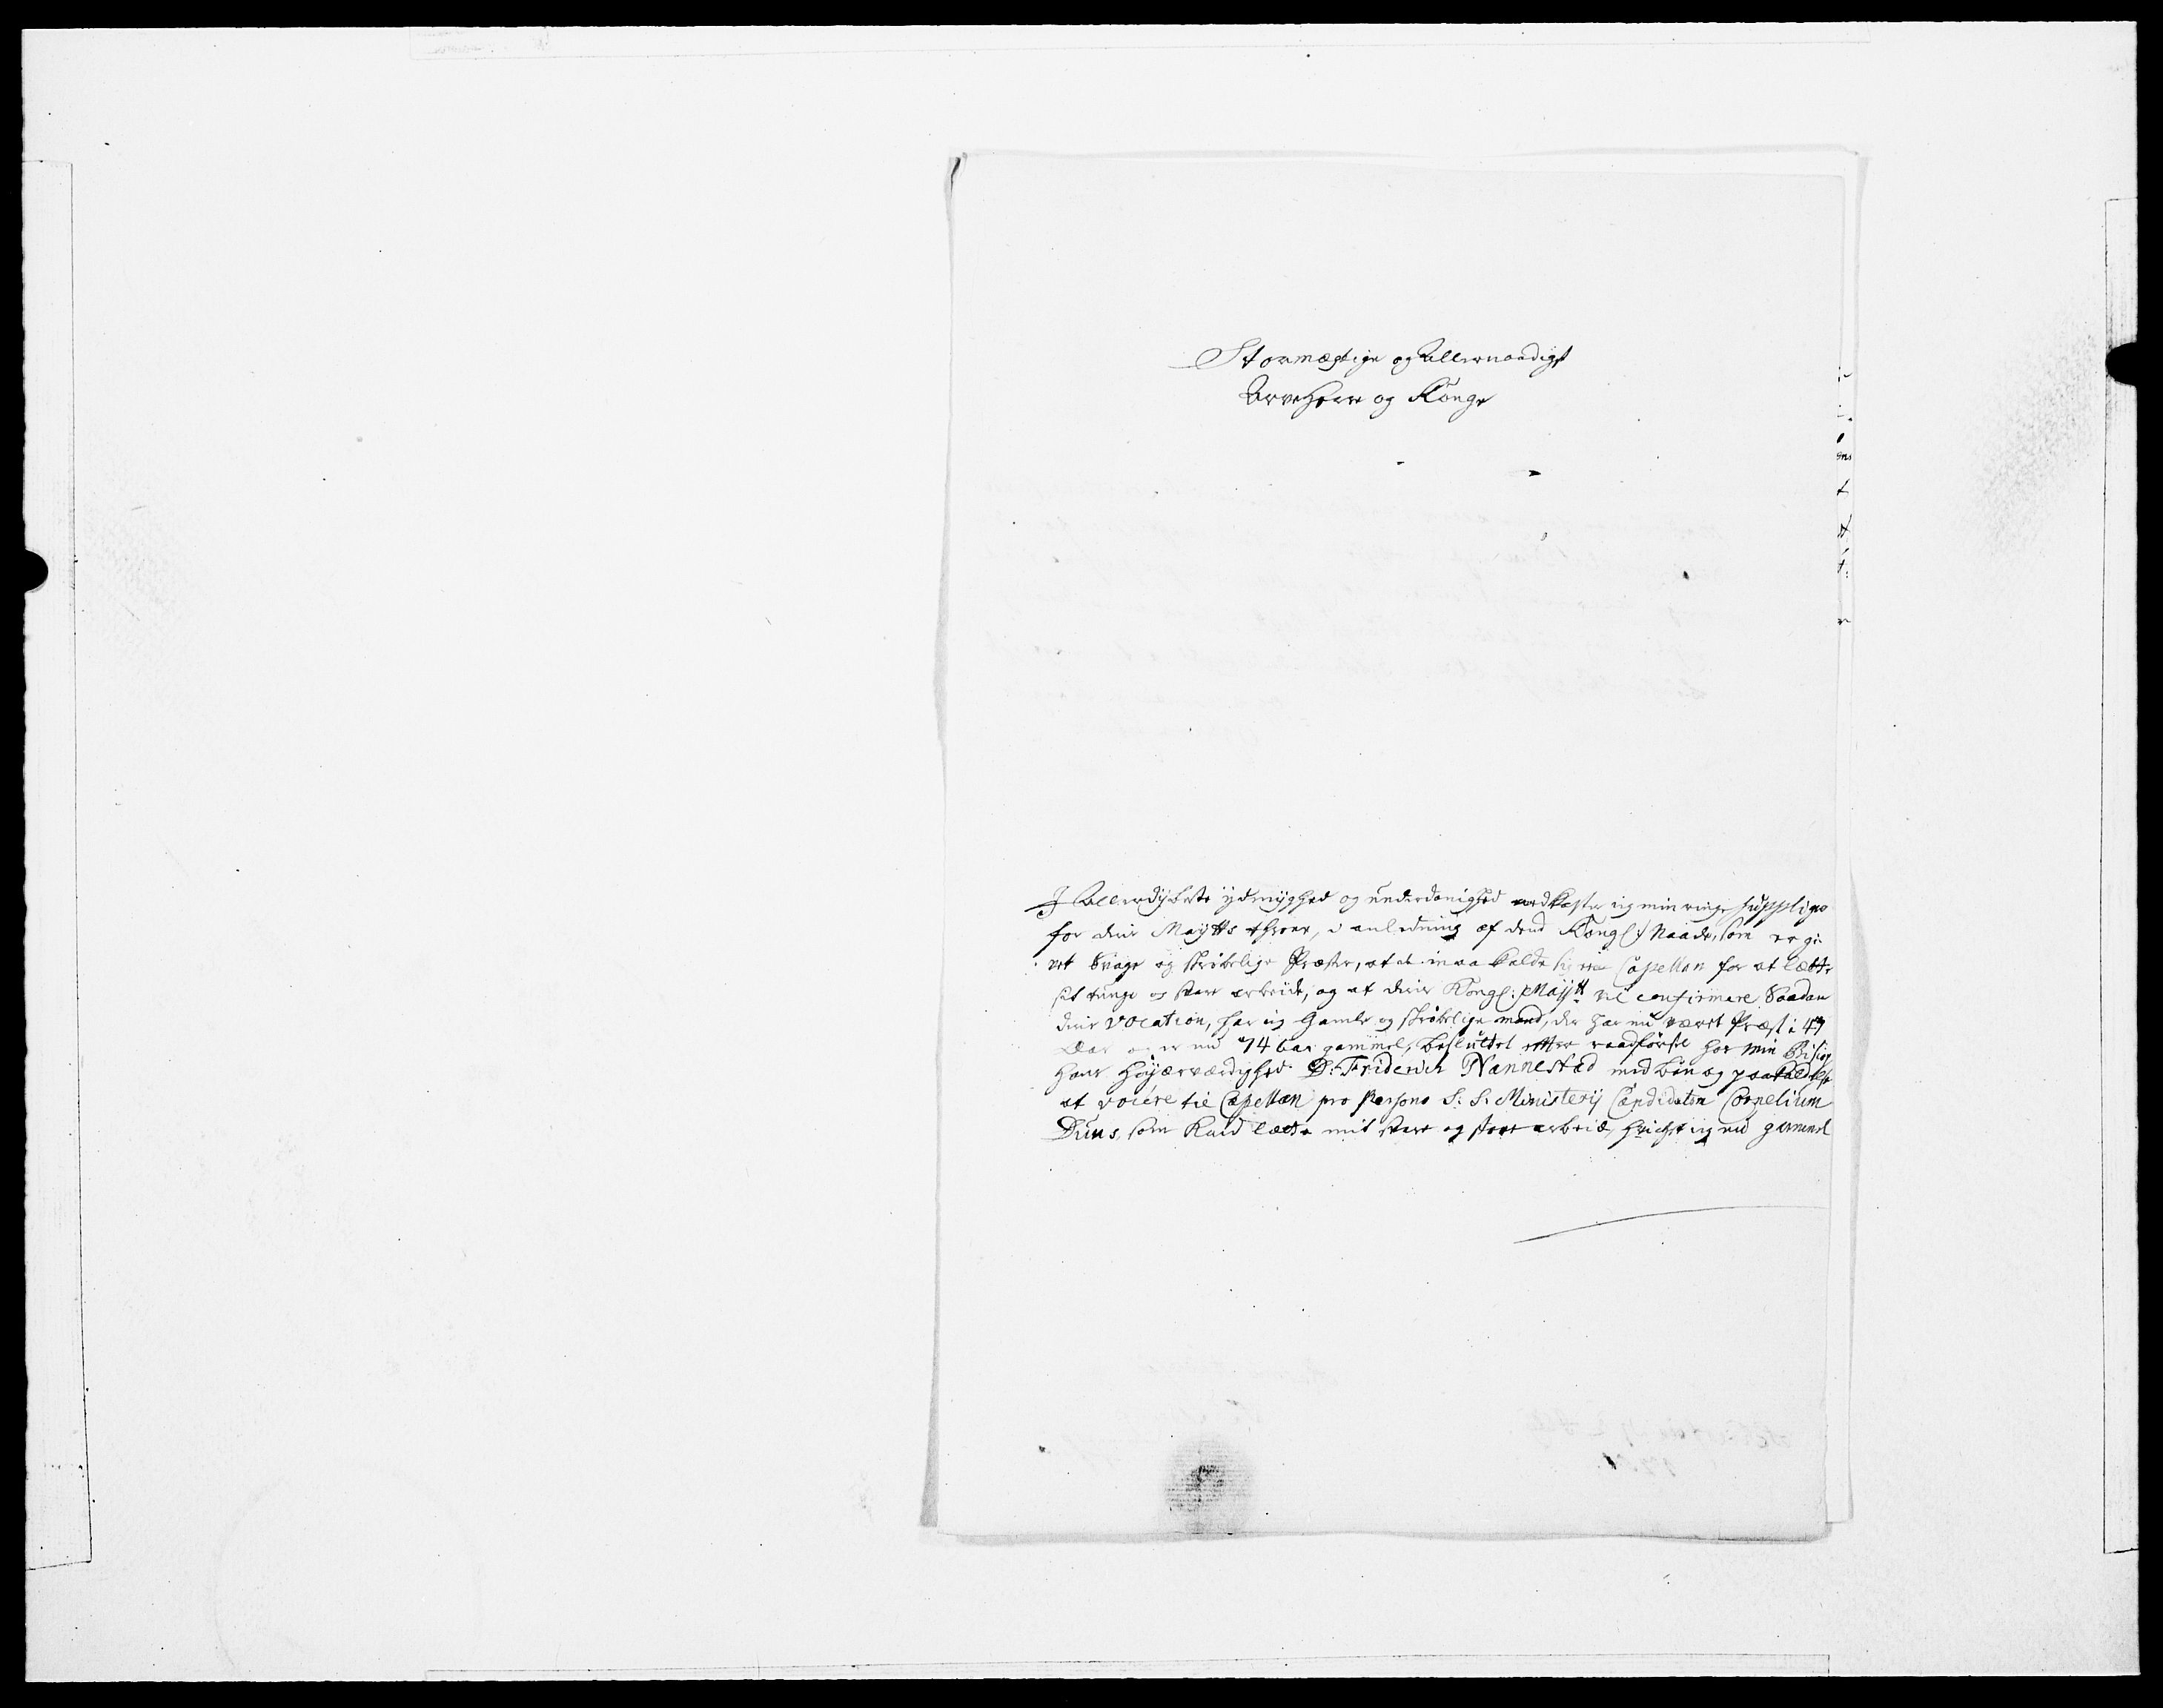 Stormægtige og Allernaadigst
Arveherre og Konge
I Allerdybeste ydmyghed og underdanighed nedkaster ieg min ringe supplique
for deris Maytts throne, i anledning af dend Kongl: Naade, som er gi
vet Svage og skrøbelige Præster, at de maa kalde sig en Capellan for at lætte
sit tunge og svare arbeide, og at deris Kongl: Maytt vil confirmere Saadan
deris vocation, har ieg Gamle og skrøbelige mand, der har nu været Præst i 47
Aar og er nu 74 aar gammel, besluttet efter raadførsel hos min Bisiop
Hans Høyærværdighed D: Friderich Nannestad med bøn og paakaldelse
at vocere til Capellan pro Persona S: S: Ministerij Candidaten Cornelium
Duus, som Kand lætte mit svare og store arbeid, hvilchet ieg nu gammel